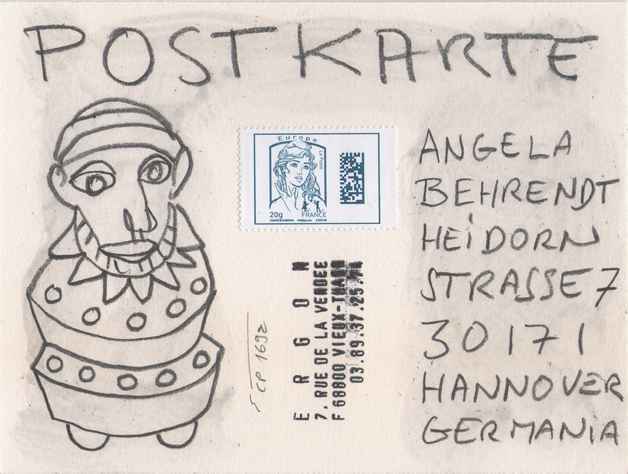 POSTKARTE
EUROPE
20g
FRANCE
ANGELA
BEHRENDT
HEIDORN
STRASSE 7
30171
HANNOVER
GERMANIA
CP 1692
E R G O N
7. RUE DE LA VENDEE
F 68800 VIEUX-THANN
03.89.37.25.